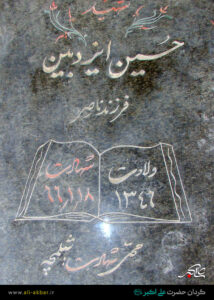 شهید
حسین ایزدبین
فرزند ناصر
ولادت
۱۳۴۶
شهادت
۶۶,۱,۱۸
محل شهادت
www.ali-akbar.ir
گردان حضرت علی اکبر